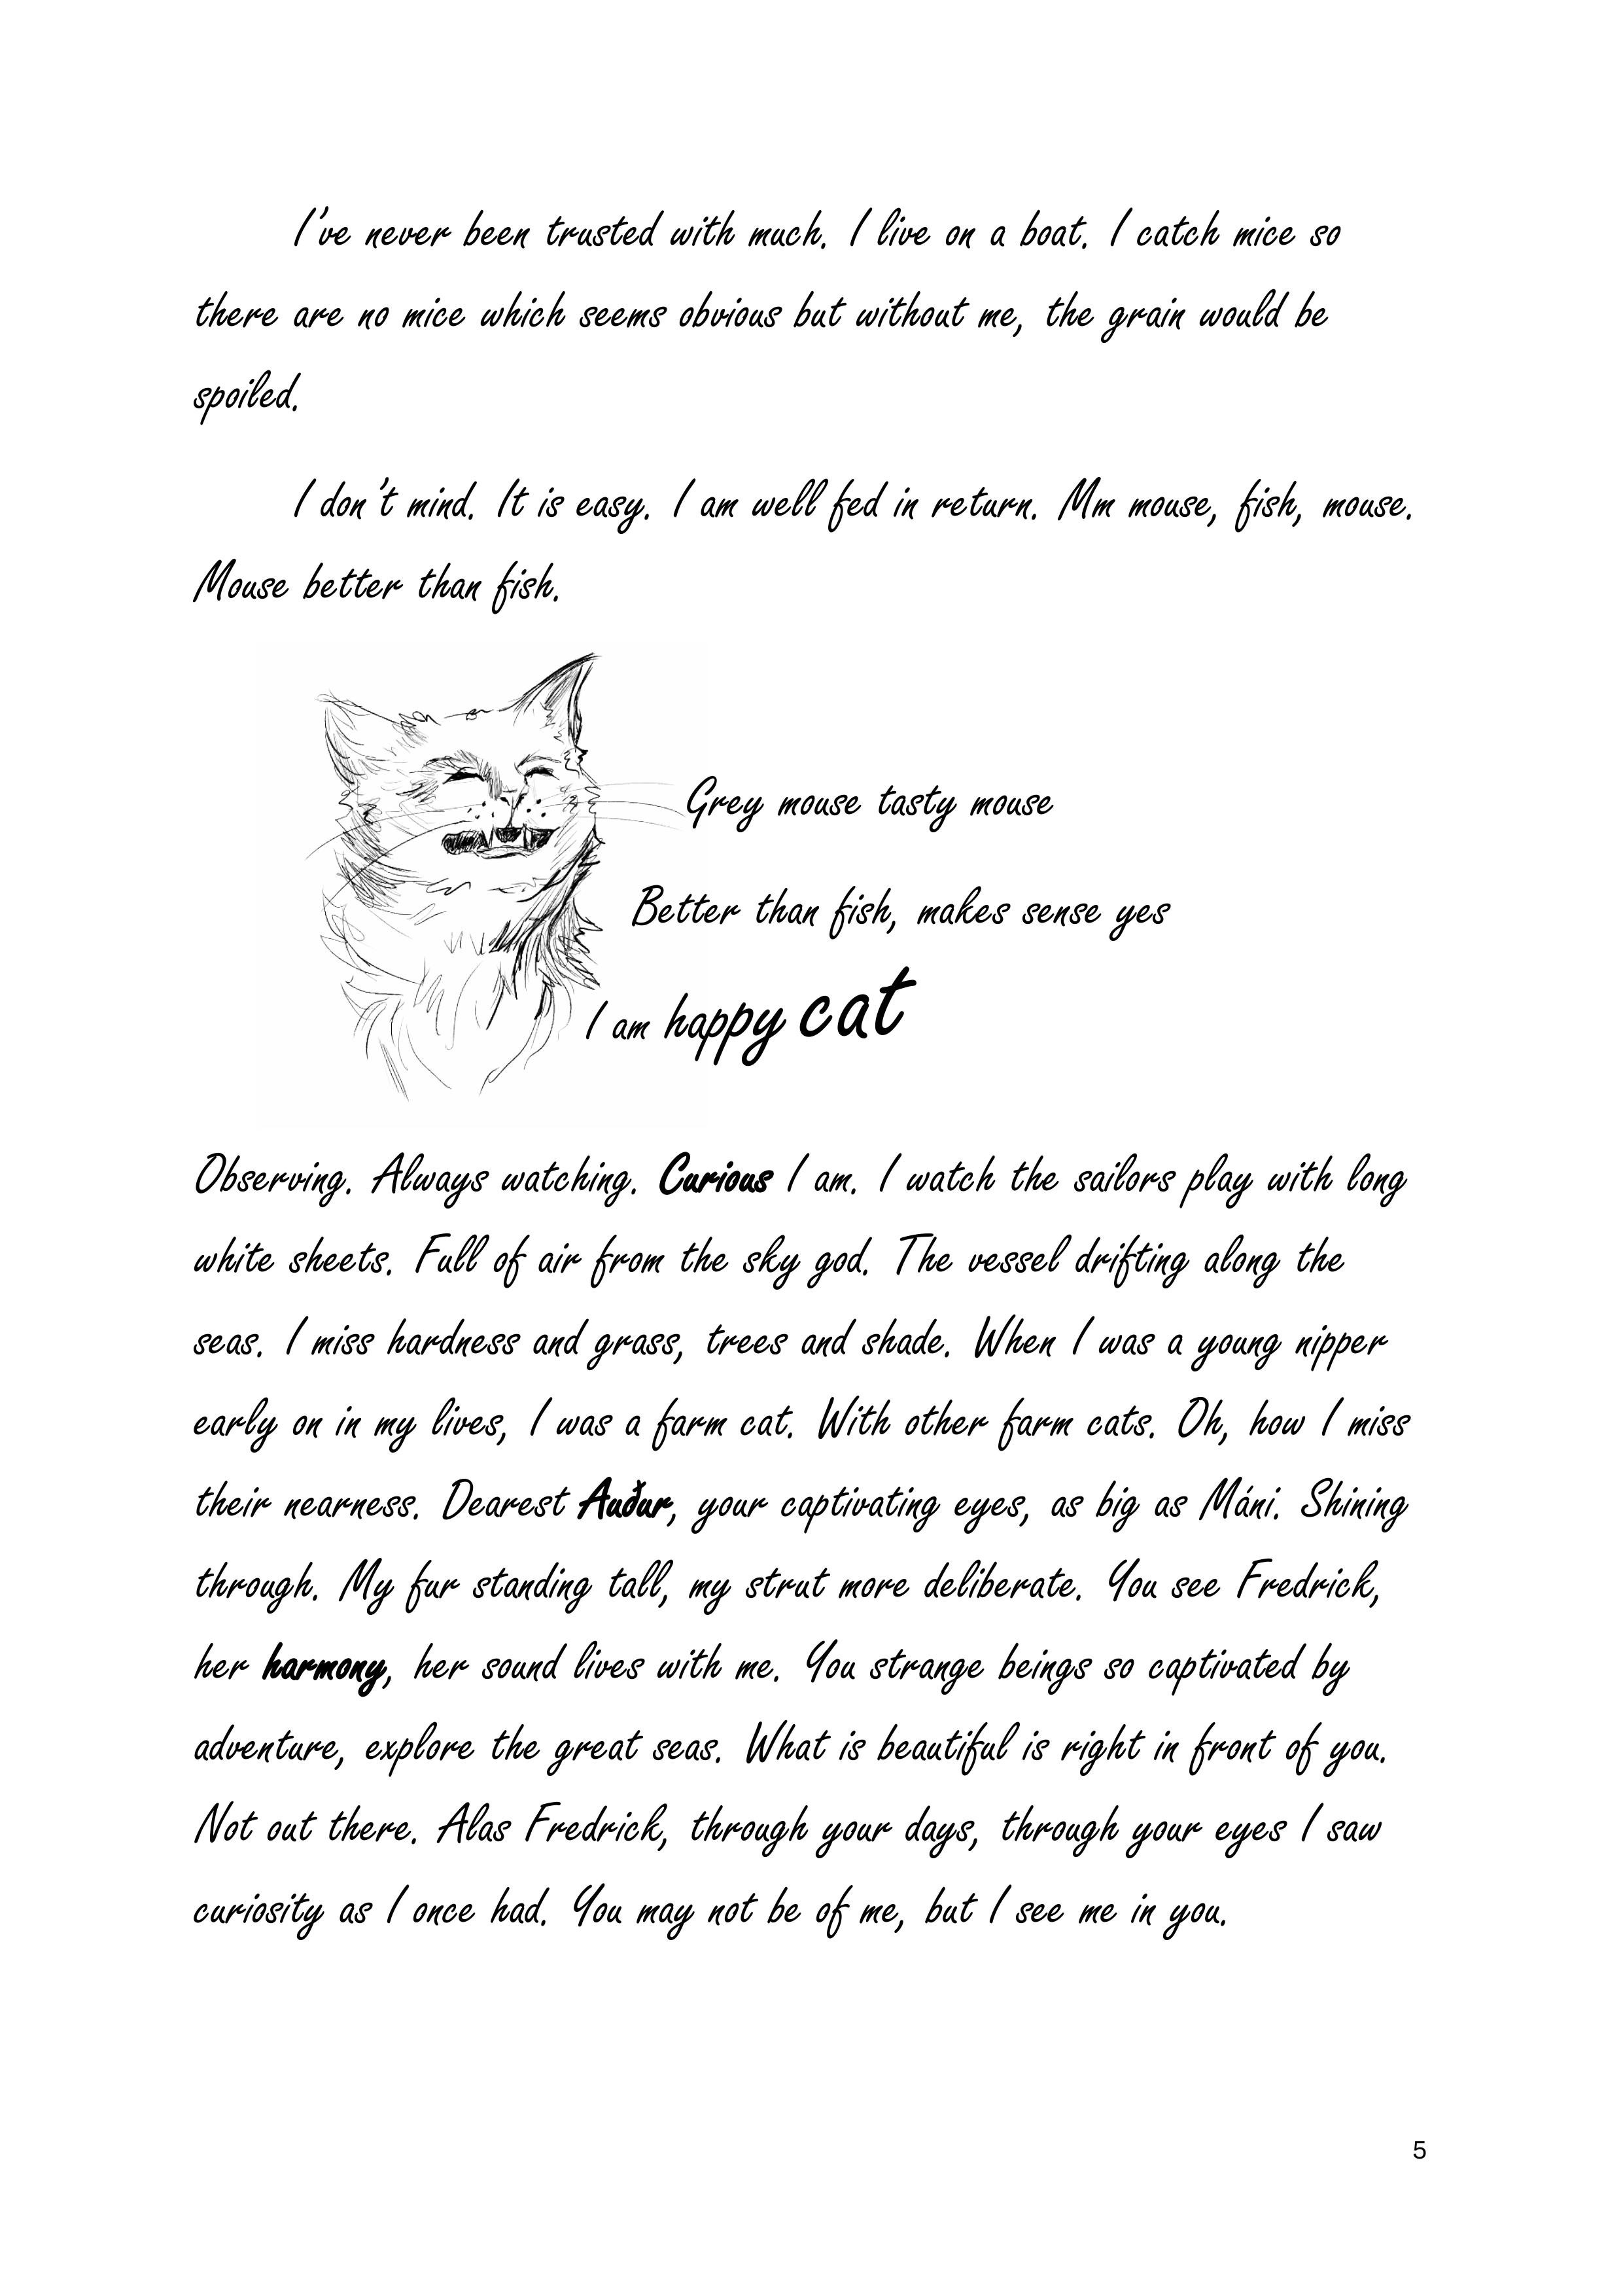 I've never been trusted with much. I live on a boat. I catch mice so
there are no mice which seems obvious but without me, the grain would be
spoiled.
I don't mind. It is easy. I am well fed in return. Mm mouse, fish, mouse.
Mouse better than fish.
Grey mouse tasty mouse
Better than fish, makes sense yes
I am happy cat
Observing. Always watching. Curious I am. I watch the sailors play with long
white sheets. Full of air from the sky god. The vessel drifting along the
seas. I miss hardness and grass, trees and shade. When I was a young nipper
early on in my lives, I was a farm cat. With other farm cats. Oh, how I miss
their nearness. Dearest Auður, your captivating eyes, as big as Máni. Shining
through. My fur standing tall, my strut more deliberate. You see Fredrick,
her harmony, her sound lives with me. You strange beings so captivated by
adventure, explore the great seas. What is beautiful is right in front of you.
Not out there. Alas Fredrick, through your days, through your eyes I saw
curiosity as I once had. You may not be of me, but I see me in you.
5